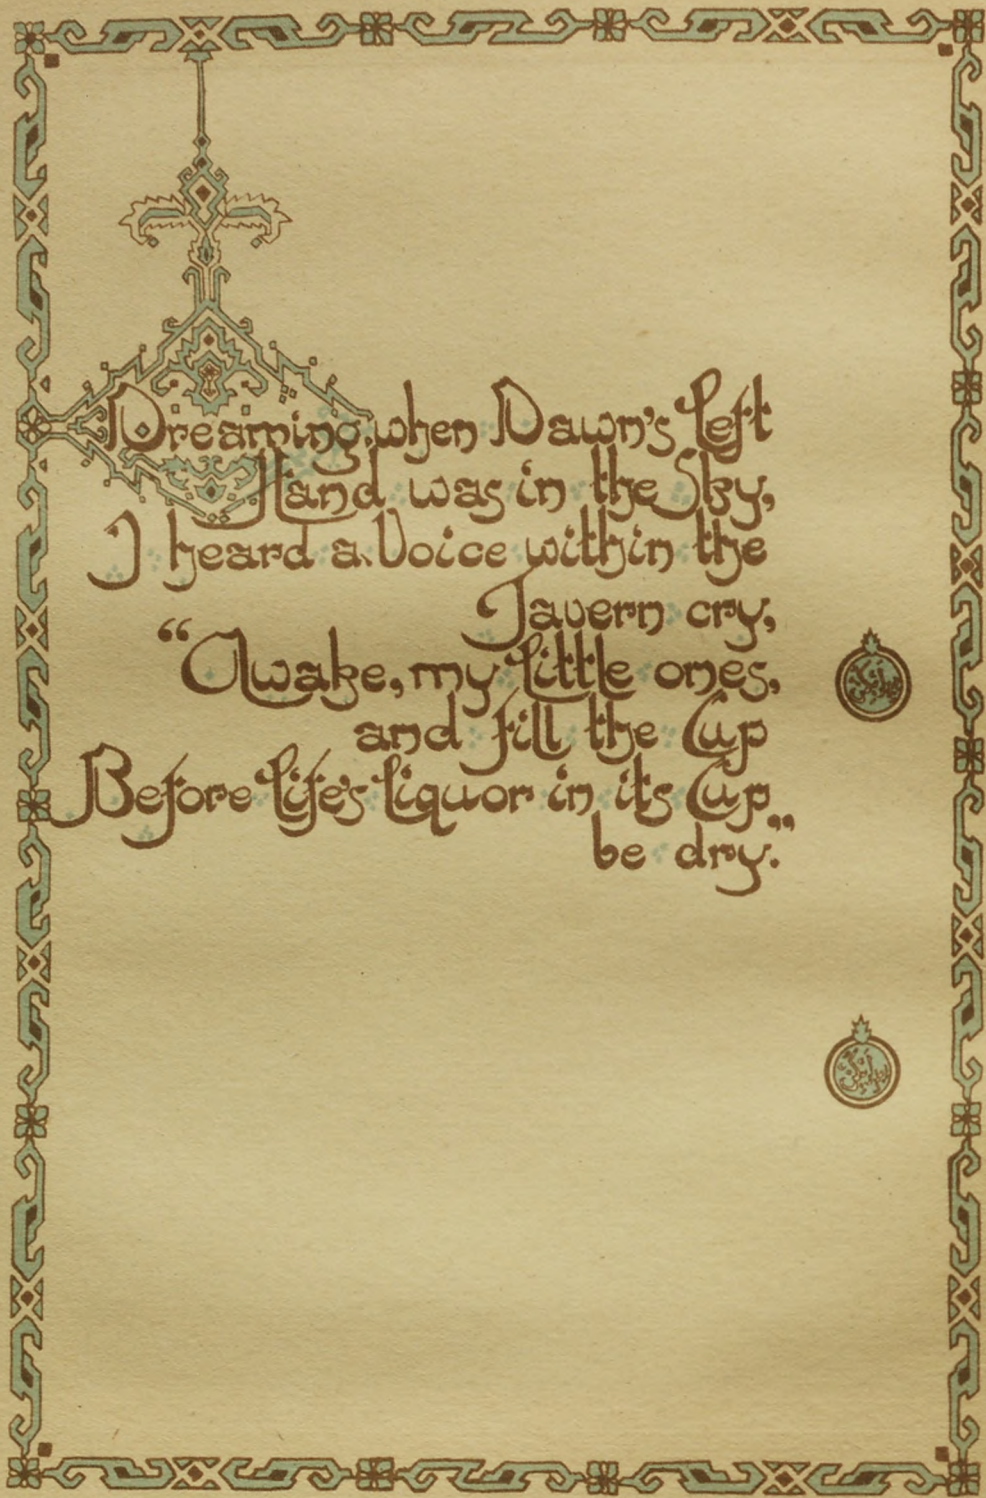 Dreaming when Dawn's Left
Hand was in the Sky,
I heard a Voice within the
Tavern cry,
“Awake, my Little ones,
and fill the Cup
Before Life's Liquor in its Cup
be dry.”